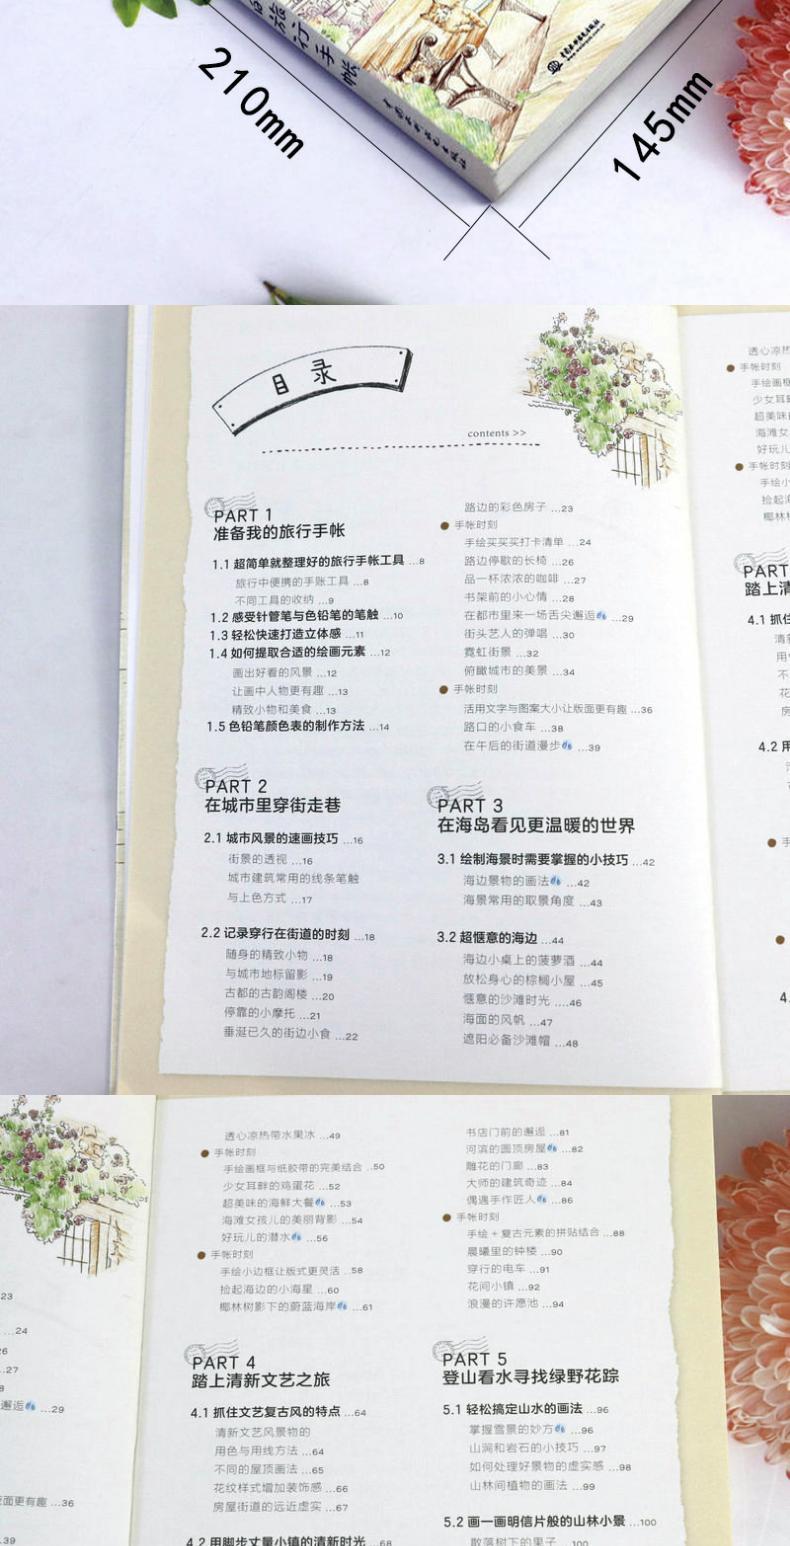 210mm
145mm
目录
contents >>
PART 1
准备我的旅行手帐
1.1 超简单就整理好的旅行手帐工具 ...8
旅行中便携的手账工具 ...8
不同工具的收纳 ...9
1.2 感受针管笔与色铅笔的笔触 ...10
1.3 轻松快速打造立体感 ...11
1.4 如何提取合适的绘画元素 ...12
画出好看的风景 ...12
让画中人物更有趣 ...13
精致小物和美食 ...13
1.5 色铅笔颜色表的制作方法 ...14
PART 2
在城市里穿街走巷
2.1 城市风景的速画技巧 ...16
街景的透视 ...16
城市建筑常用的线条笔触
与上色方式 ...17
2.2 记录穿行在街道的时刻 ...18
随身的精致小物 ...18
与城市地标留影 ...19
古都的古韵阁楼 ...20
停靠的小摩托 ...21
垂涎已久的街边小食 ...22
路边的彩色房子 ...23
手帐时刻
手绘买买买打卡清单 ...24
路边停歇的长椅 ...26
品一杯浓浓的咖啡 ...27
书架前的小心情 ...28
在都市里来一场舌尖邂逅 ...29
街头艺人的弹唱 ...30
霓虹街景 ...32
俯瞰城市的美景 ...34
手帐时刻
活用文字与图案大小让版面更有趣 ...36
路口的小食车 ...38
在午后的街道漫步 ...39
PART 3
在海岛看见更温暖的世界
3.1 绘制海景时需要掌握的小技巧 ...42
海边景物的画法 ...42
海景常用的取景角度 ...43
3.2 超惬意的海边 ...44
海边小桌上的菠萝酒 ...44
放松身心的棕榈小屋 ...45
惬意的沙滩时光 ....46
海面的风帆 ...47
遮阳必备沙滩帽 ...48
透心凉热
手帐时刻
手绘画框
少女耳畔
超美味
海滩女
好玩儿
手帐时刻
手绘小
捡起海
椰林树
PART
踏上清
4.1 抓住
清新
用
不
花
房
4.2 用
手
4.
23
...24
26
...27
8
邂逅 ...29
版面更有趣 ...36
.39
透心凉热带水果冰 ...49
手帐时刻
手绘画框与纸胶带的完美结合 ..50
少女耳畔的鸡蛋花 ...52
超美味的海鲜大餐 ...53
海滩女孩儿的美丽背影 ...54
好玩儿的潜水 ...56
手帐时刻
手绘小边框让版式更灵活 ..58
捡起海边的小海星 ...60
椰林树影下的蔚蓝海岸 ...61
PART 4
踏上清新文艺之旅
4.1 抓住文艺复古风的特点 ...64
清新文艺风景物的
用色与用线方法 ...64
不同的屋顶画法 ...65
花纹样式增加装饰感 ...66
房屋街道的远近虚实 ...67
4.2 用脚步丈量小镇的清新时光 ...68
书店门前的邂逅 ...81
河滨的圆顶房屋 ...82
雕花的门廊 ...83
大师的建筑奇迹 ...84
偶遇手作匠人 ...86
手帐时刻
手绘 + 复古元素的拼贴结合 ...88
晨曦里的钟楼 ...90
穿行的电车 ...91
花间小镇 ...92
浪漫的许愿池 ...94
PART 5
登山看水寻找绿野花踪
5.1 轻松搞定山水的画法 ...96
掌握雪景的妙方 ...96
山涧和岩石的小技巧 ...97
如何处理好景物的虚实感 ...98
山林间植物的画法 ...99
5.2 画一画明信片般的山林小景 ...100
散落树下的果子 ...100